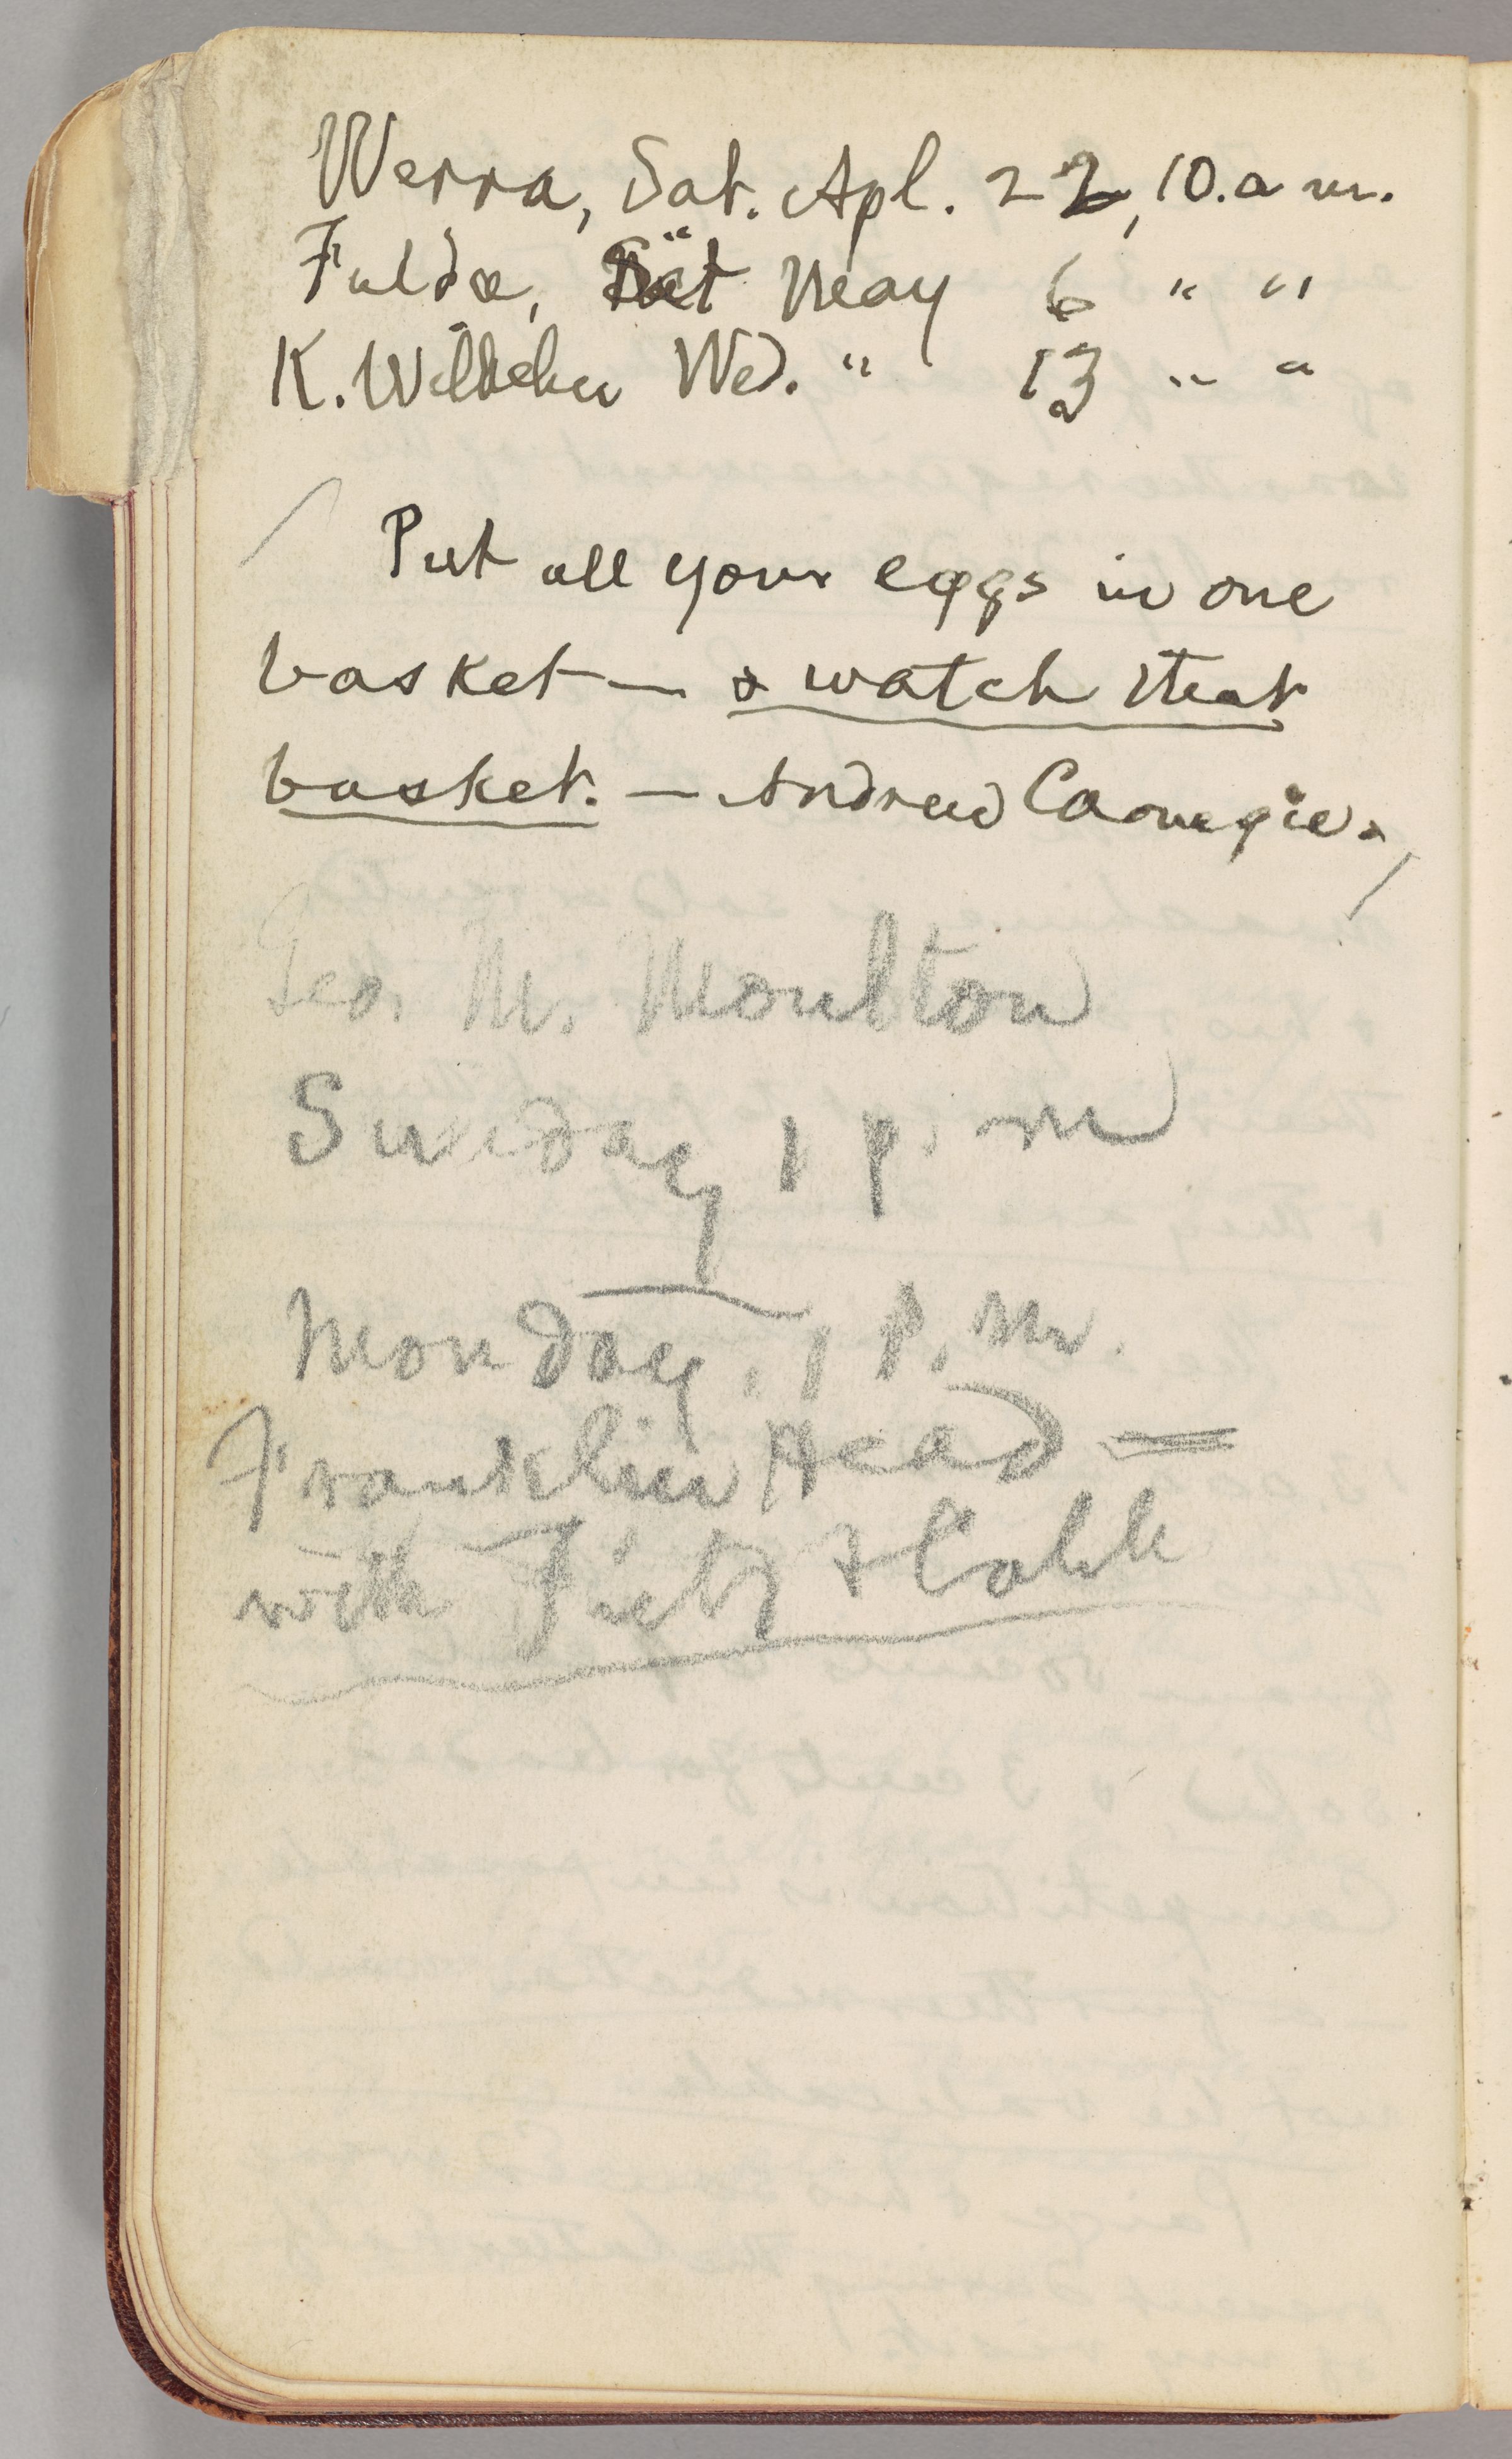 Werra, Sat. Apl. 22, 10. a m.
Fulda, Sat May 6 " "
K. Wilhelm Wed. " 13 " "
Put all your eggs in one
basket — & watch that
basket. — Andrew Carnegie.
Geo. M. Moulton
Sunday 1 p. m
Monday, 1 P. M.
Franklin Head —
with Field & Cobb